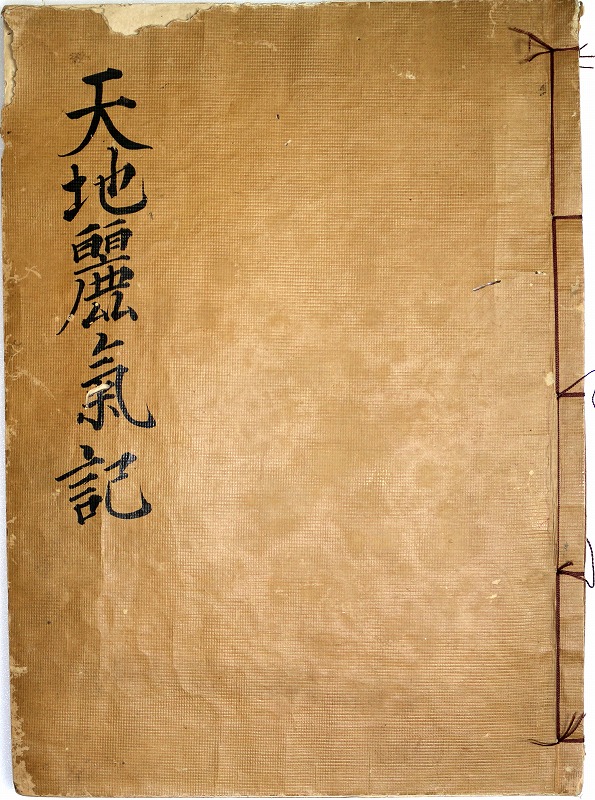 天地麗氣記